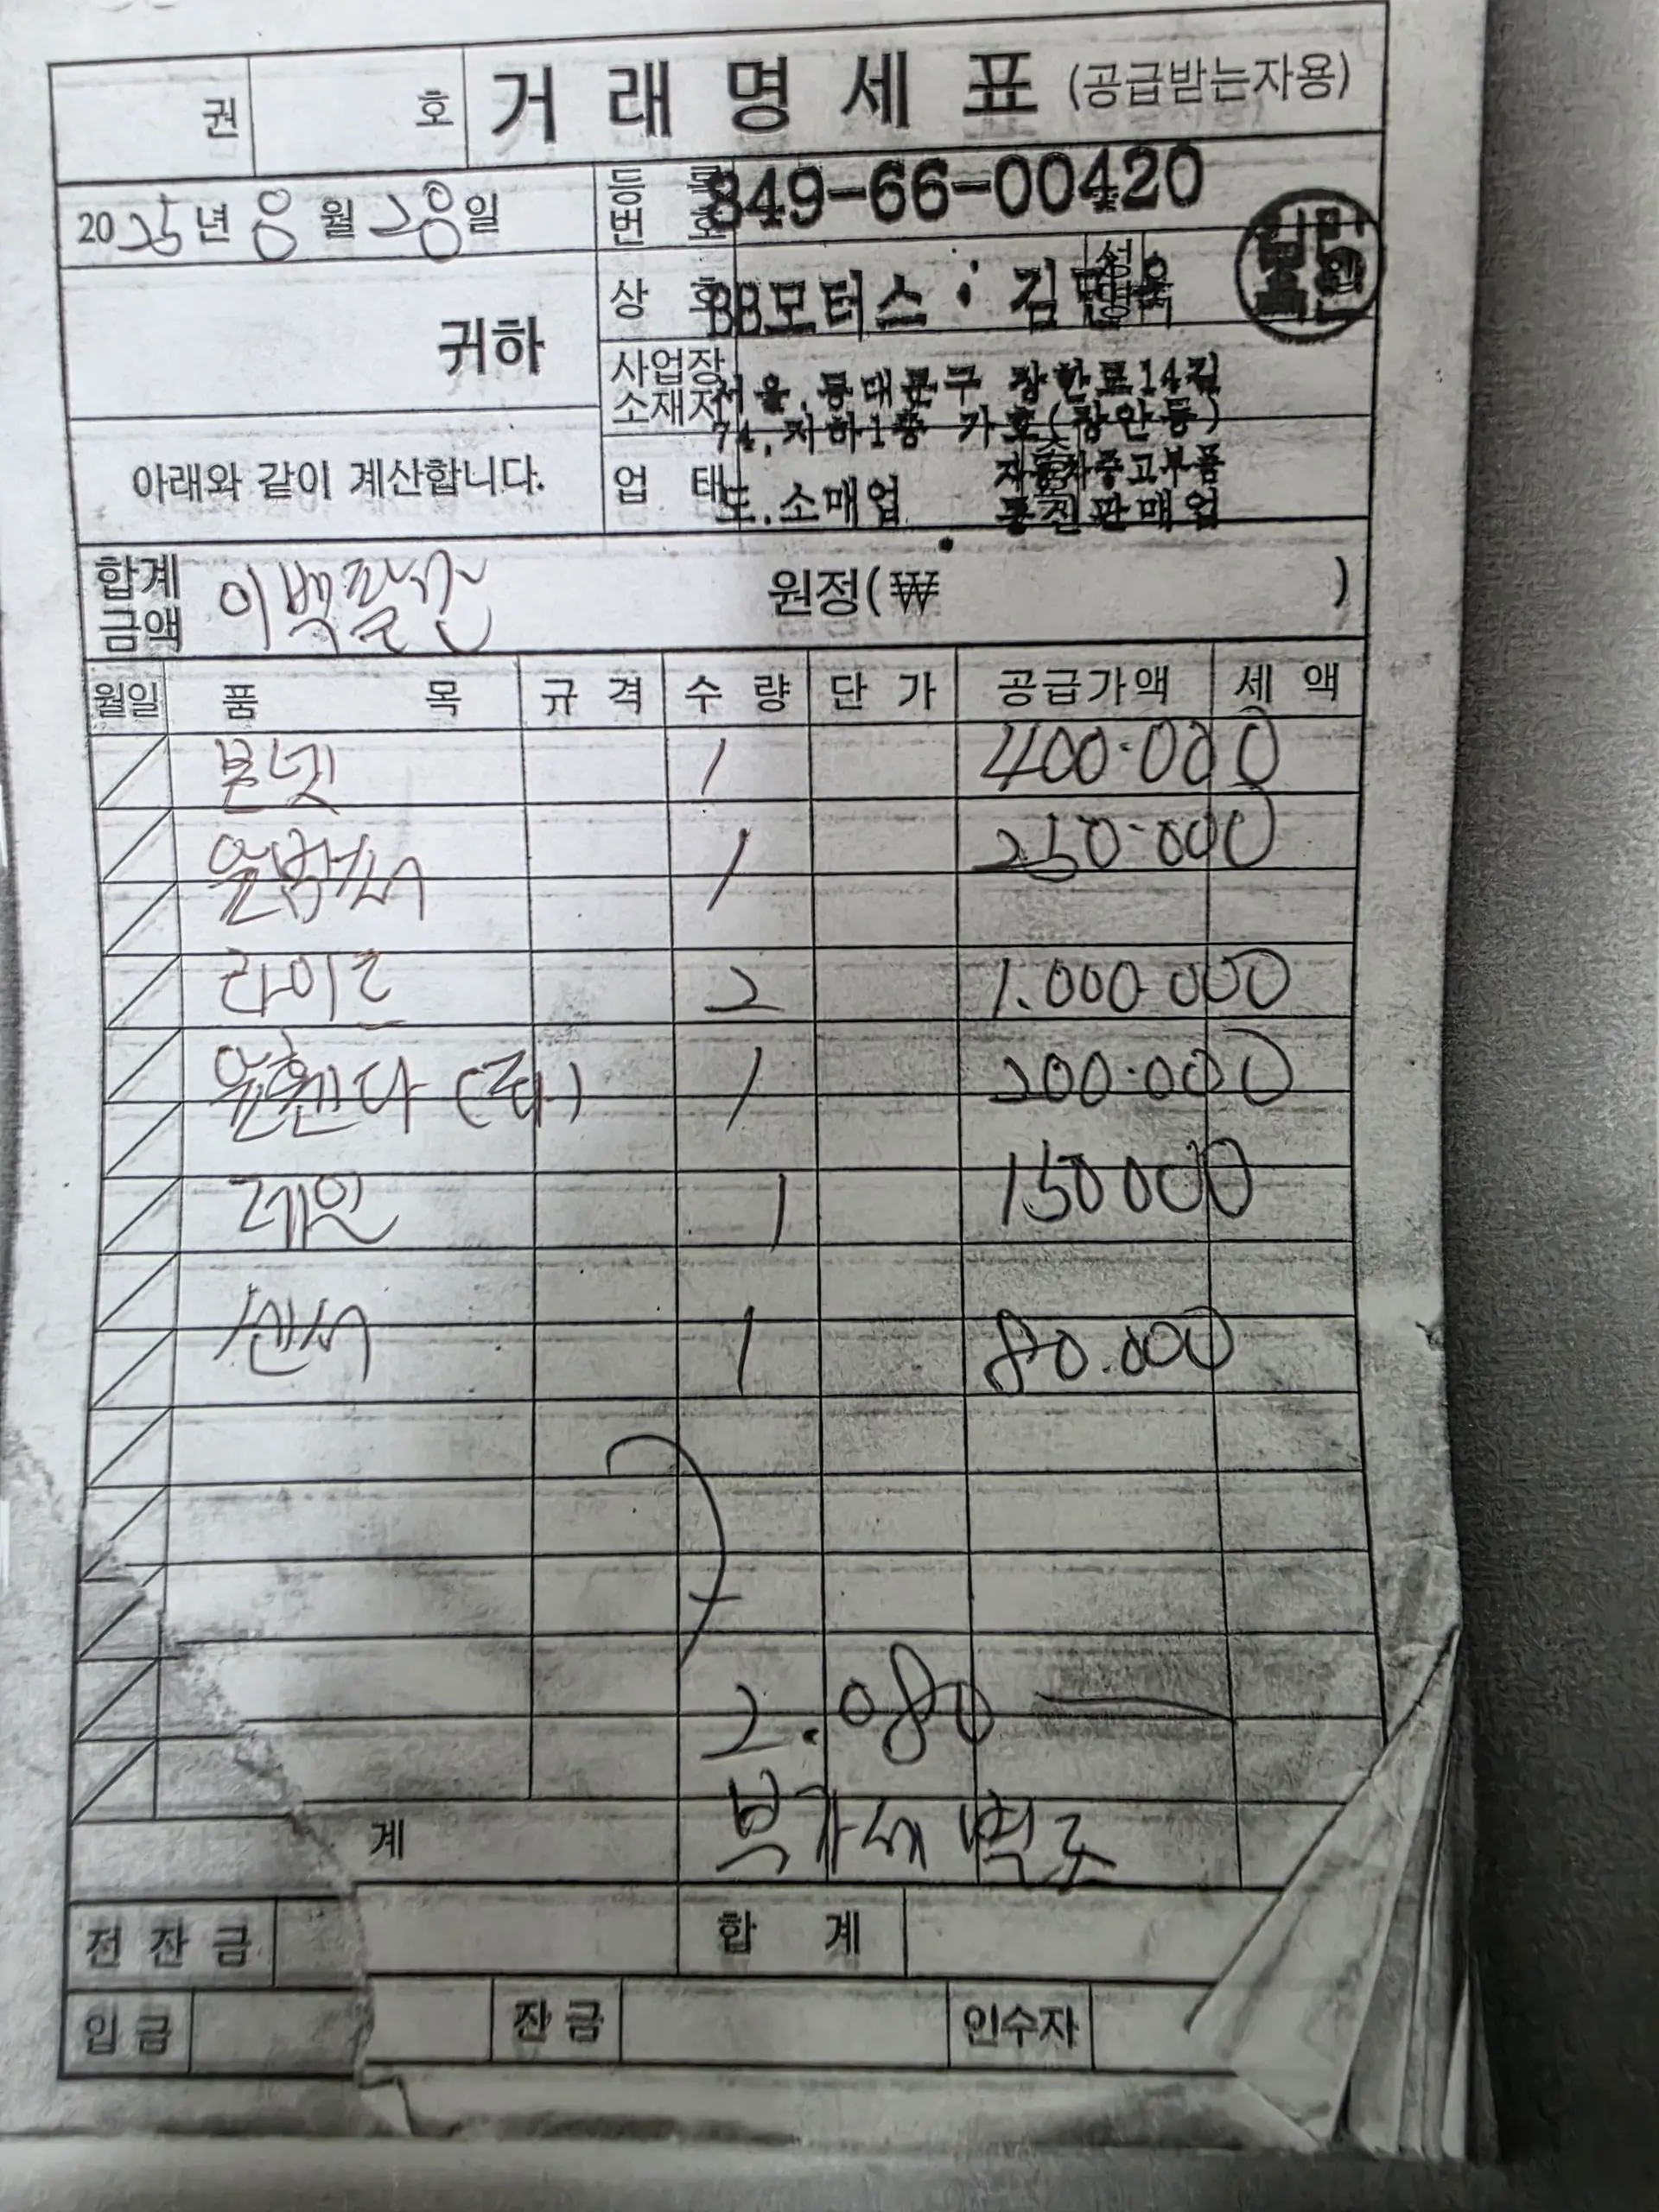 권 호 거 래 명 세 표 (공급받는자용)
2025년 8월 28일
등록번호 849-66-00420
귀하
상 호 BB모터스 : 김 성명
사업장소재지 서울.동대문구 장한로14길
74,지하1층 가호(장안동)
아래와 같이 계산합니다.
업 태 도.소매업 자동차중고부품
판매업
합계금액 이백팔만 원정(₩ )
월일 품 목 규 격 수 량 단 가 공급가액 세 액
본넷 1 400.000
앞밤바 1 250.000
라이트 2 1.000.000
앞휀다 (좌) 1 200.000
레일 1 150000
센서 1 80.000
2.080
계 부가세 별도
전 잔 금 합 계
입 금 잔 금 인수자